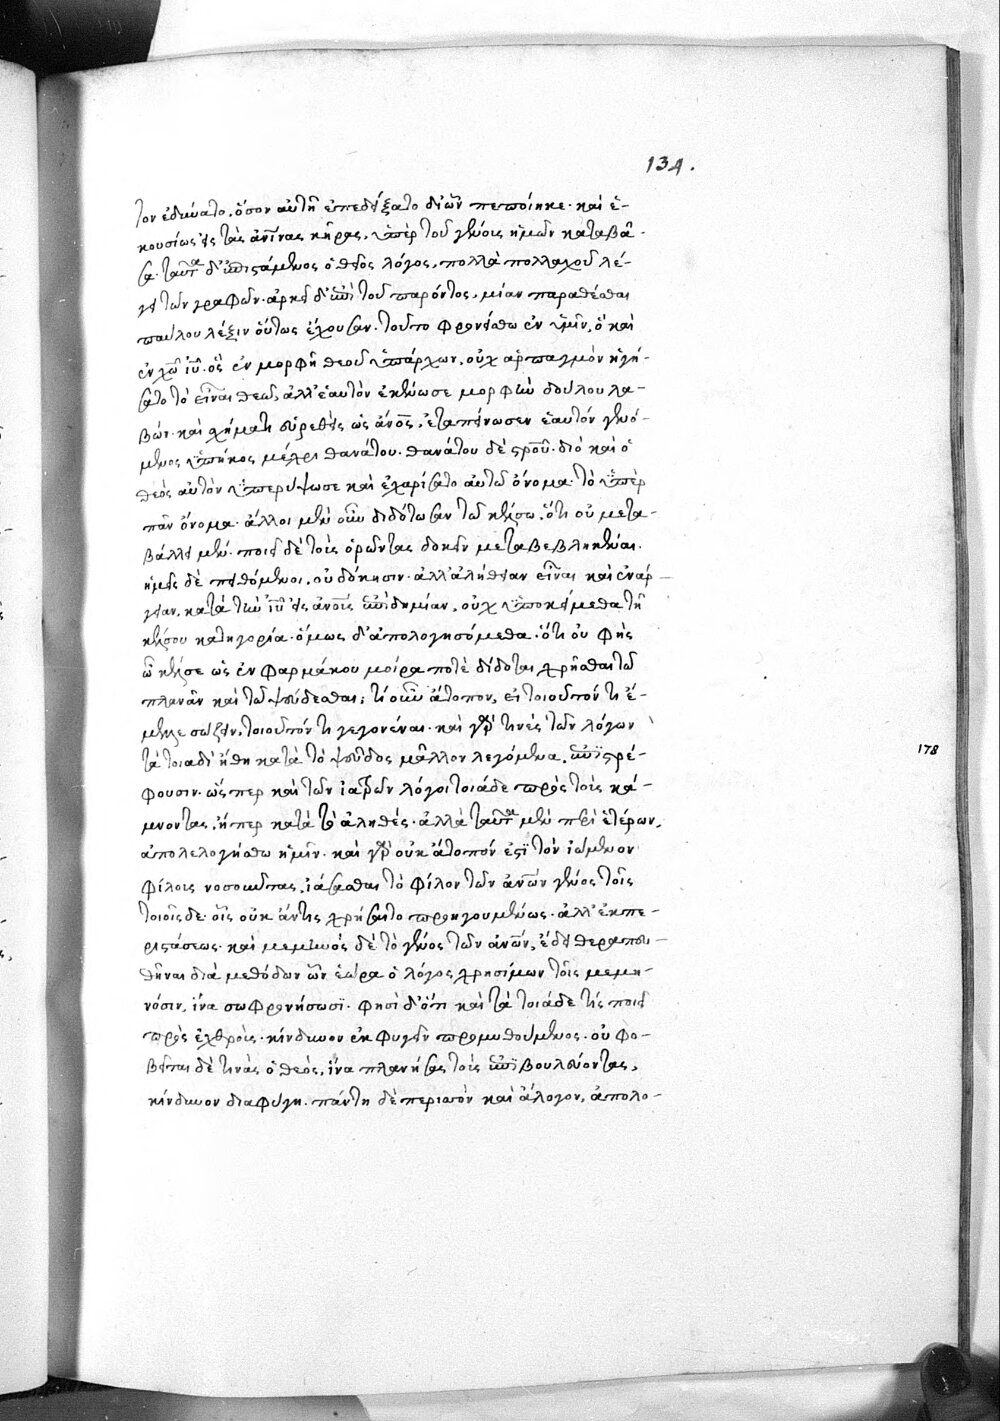 134.
τον ἐδύνατο. ὅσον αὐτῆ ἐπεδείξατο δι' ὧν πεποίηκε. καὶ ἑ-
κουσίως εἰς τὰς ἀνίνας κῆρας, ὑπὲρ τοῦ γένοις ἡμῶν καταβά-
σα. ταῦτα δ' ἐπιστάμενος ὁ θεῖος λόγος, πολλὰ πολλαχοῦ λέ-
γει τῶν γραφῶν. ἀρκεῖ δ' ἐπὶ τοῦ παρόντος, μίαν παραθέσθαι
παύλου λέξιν οὕτως ἔχουσαν. τοῦτο φρονείσθω ἐν ὑμῖν, ὃ καὶ
ἐν χῶ ἰῦ. ὃς ἐν μορφῆ θεοῦ ὑπάρχων, οὐχ ἁρπαγμὸν ἡγή-
σατο τὸ εἶναι θεῶ, ἀλλ' ἑαυτὸν ἐκένωσε μορφὴν δούλου λα-
βών. καὶ σχήματι εὑρεθεὶς ὡς ἄνος, ἐταπείνωσεν ἑαυτόν γενό-
μενος ὑπήκοος μέχρι θανάτου. θανάτου δὲ σροῦ. διὸ καὶ ὁ
θεὸς αὐτὸν ὑπερύψωσε καὶ ἐχαρίσατο αὐτῶ ὄνομα. τὸ ὑπὲρ
πᾶν ὄνομα. ἄλλοι μὲν οὖν διδότωσαν τῶ κέλσω, ὅτι οὐ μετα-
βάλλει μέν. ποιεῖ δὲ τοὺς ὁρῶντας δοκεῖν μεταβεβληκέναι.
ἡμεῖς δὲ πειθόμενοι, οὐ δόκησιν. ἀλλ' ἀλήθειαν εἶναι καὶ ἐνάρ-
γειαν, κατὰ τὴν ἰῦ εἰς ἀνοῖς ἐπιδημίαν, οὐχ ὑποκείμεθα τῆ
κέλσου κατηγορία. ὅμως δ' ἀπολογησόμεθα. ὅτι οὐ φῂς
ὦ κέλσε ὡς ἐν φαρμάκου μοίρα ποτὲ δίδοται χρῆσθαι τῶ
πλανᾶν καὶ τῶ ψεύδεσθαι; τί οὖν ἄτοπον, εἰ τοιοῦτόν τι ἔ-
μελλε σώζειν, τοιοῦτόν τι γεγονέναι. καὶ γάρ τινὲς τῶν λόγων
τὰ τοιαδὶ ἤθη κατὰ τὸ ψεῦδος μᾶλλον λεγόμενα, ἐπιστρέ-
φουσιν. ὥς περ καὶ τῶν ἰατρῶν λόγοι τοιάδε πρὸς τοὺς κά-
μνοντας, ἤπερ κατὰ τὸ ἀληθές. ἀλλὰ ταῦτα μὲν περὶ ἑτέρων,
ἀπολελογήσθω ἡμῖν. καὶ γὰρ οὐκ ἄτοπόν ἐστι τὸν ἰώμενον
φίλοις νοσοῦντας, ἰάσασθαι τὸ φίλον τῶν ἀνῶν γένος τοῖς
τοιοῖς δε οἷς οὐκ ἄν τις χρήσαιτο προηγουμένως. ἀλλ' ἐκ πε-
ριστάσεως. καὶ μεμηνὸς δὲ τὸ γένος τῶν ἀνῶν, ἔδει θεραπευ-
θῆναι διὰ μεθόδων ὧν ἑώρα ὁ λόγος χρησίμων τοῖς μεμη-
νόσιν, ἵνα σωφρονήσωσι. φησὶ δ' ὅτι καὶ τὰ τοιάδε τίς ποιεῖ
πρὸς ἐχθροὺς. κίνδυνον ἐκφυγεῖν προμηθούμενος. οὐ φο-
βεῖται δὲ τινὰς ὁ θεὸς, ἵνα πλανήσας τοὺς ἐπιβουλεύοντας,
κίνδυνον διαφύγη. πάντη δὲ περισσὸν καὶ ἄλογον, ἀπολο-
178